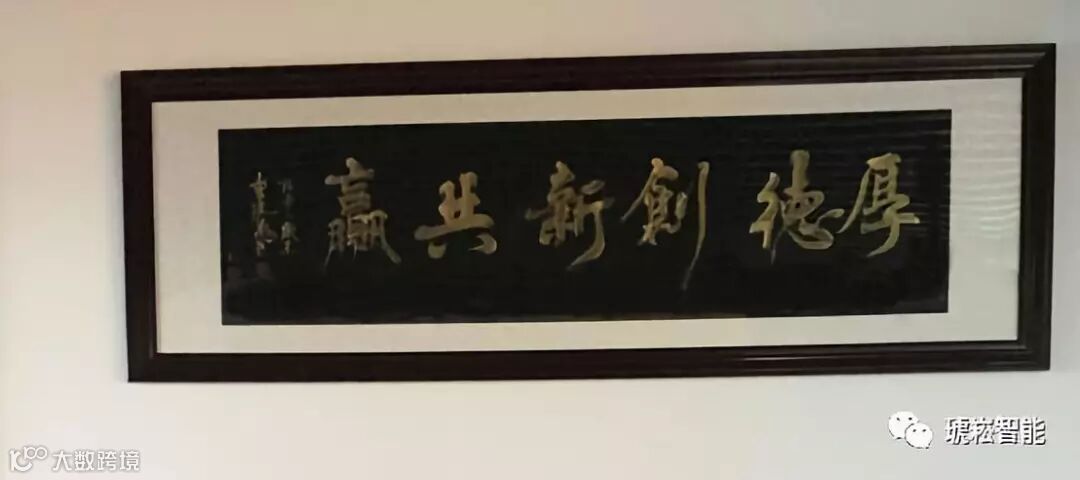 厚德創新共贏
琥崧智能
大数跨境